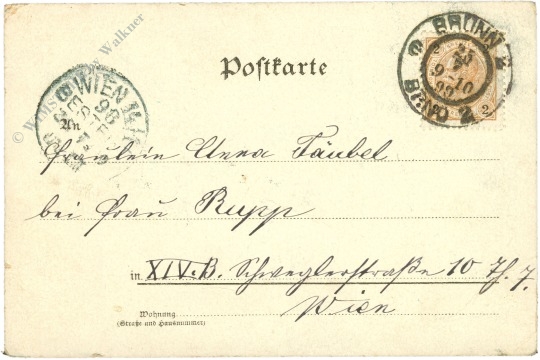 © Wms Walkner
BRÜNN 2
BRNO 2
9-10
99
2
Postkarte
WIEN
An
Fräulein Anna Täubel
bei Frau Rupp
in XIV. B. Schweglerstraße 10 Th. 7.
Wien
Wohnung
(Straße und Hausnummer)